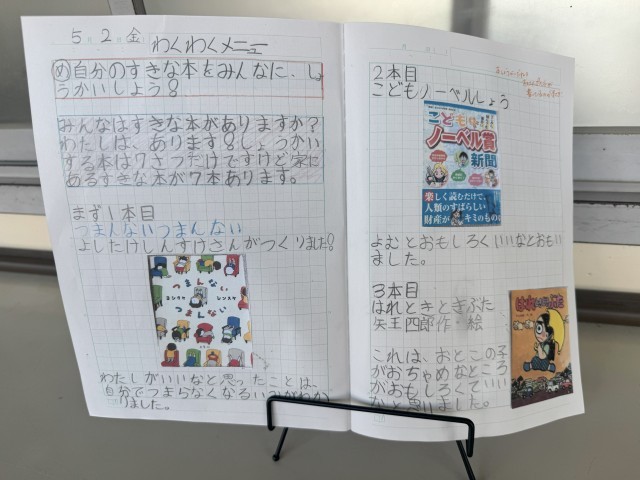 5月2日金 わくわくメニュー
め自分のすきな本をみんなに、しょ
うかいしよう!
みんなはすきな本がありますか?
わたしは、あります!しょうかい
する本は7さつだけですけど家に
あるすきな本が7本あります。
まず1本目
つまんないつまんない
よしたけしんすけさんがつくりました!
つまんない
ヨシタケ シンスケ
つまんない
わたしがいいなと思ったことは、
自分でつまらなくなる
りました。
2本目
こどもノーベルしょう
こども
ノーベル賞
新聞
楽しく読むだけで、
人類のすばらしい
財産がキミのもの
よむとおもしろくいいなとおもい
ました。
3本目
はれときどきぶた
矢玉四郎 作・絵
はれときどきぶた
これは、おとこの子
がおちゃめなところ
がおもしろくていい
なと思いました。